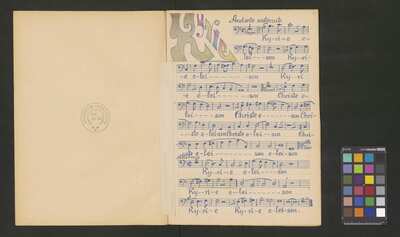 Kyrie
Andante sostenuto
Ky-ri-e e-
lei---son Ky-ri
-e e-lei------son Ky-ri
-e e-lei-------son Christe e-
lei----son Christe e---son Chri-
-ste e-leison Christe e-lei--son Chri-
-ste e-lei-----son e-lei-son
Ky-ri-e e-lei------son
Ky--ri-e e-lei-----son
Ky-ri-e Ky-ri-e e-lei-son.